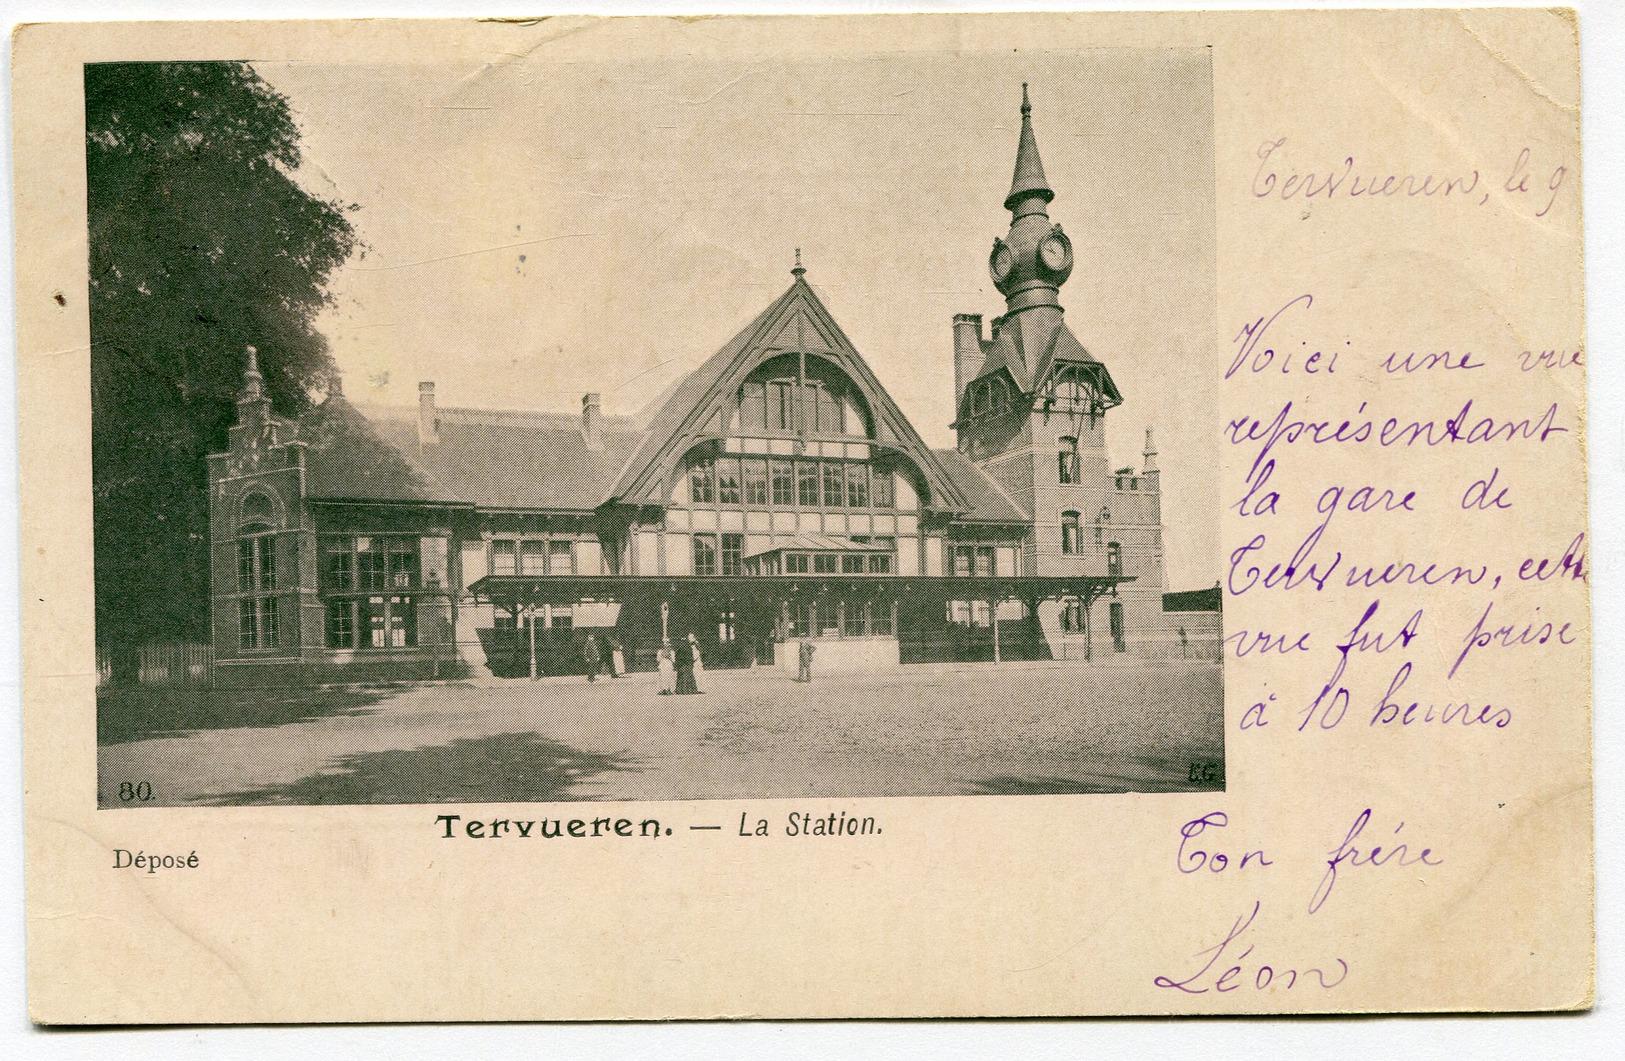 Tervueren, le 9
Voici une vue
représentant
la gare de
Tervueren, cette
vue fut prise
à 10 heures
Ton frére
Léon
80.
E.G.
Tervueren. — La Station.
Déposé